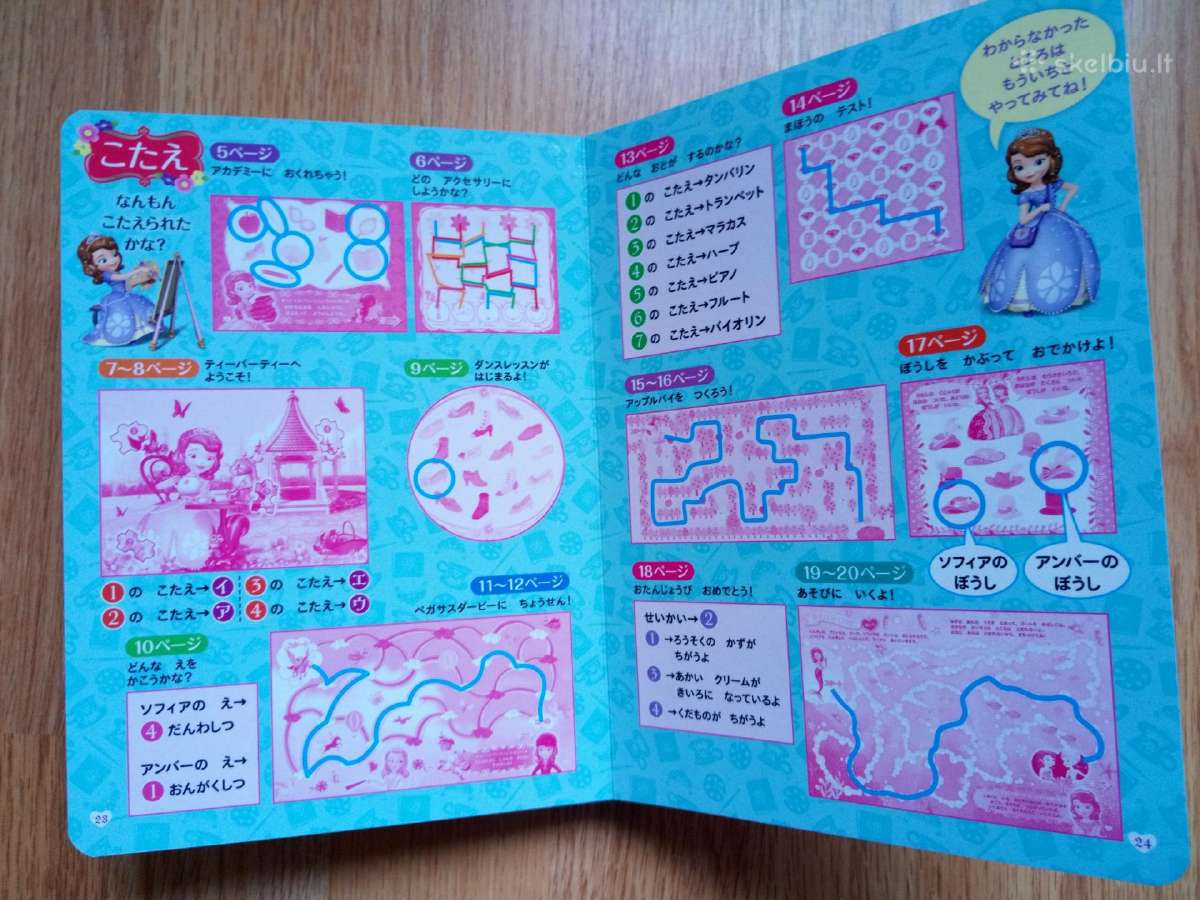 こたえ
なんもん
こたえられた
かな?
5ページ
アカデミーに おくれちゃう!
6ページ
どの アクセサリーに
しようかな?
7~8ページ
ティーパーティーへ
ようこそ!
1の こたえ→イ
3の こたえ→エ
2の こたえ→ア
4の こたえ→ウ
9ページ
ダンスレッスンが
はじまるよ!
10ページ
どんな えを
かこうかな?
ソフィアの え→
4 だんわしつ
アンバーの え→
1 おんがくしつ
11~12ページ
ペガサスダービーに ちょうせん!
23
13ページ
どんな おとが するのかな?
1の こたえ→タンバリン
2の こたえ→トランペット
3の こたえ→マラカス
4の こたえ→ハープ
5の こたえ→ピアノ
6の こたえ→フルート
7の こたえ→バイオリン
14ページ
まほうの テスト!
わからなかった
ところは
もういちど
やってみてね!
skelbiu.lt
15~16ページ
アップルパイを つくろう!
17ページ
ぼうしを かぶって おでかけよ!
ソフィアの
ぼうし
アンバーの
ぼうし
18ページ
おたんじょうび おめでとう!
せいかい→2
1→ろうそくの かずが
ちがうよ
3→あかい クリームが
きいろに なっているよ
4→くだものが ちがうよ
19~20ページ
あそびに いくよ!
24